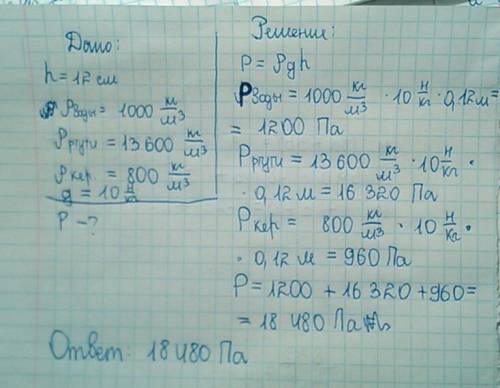 Дано:
h = 12 см
ρводы = 1000 кг/м³
ρртути = 13 600 кг/м³
ρкер. = 800 кг/м³
g = 10 Н/кг
P - ?
Решение:
P = ρgh
Pводы = 1000 кг/м³ · 10 Н/кг · 0,12м =
= 1200 Па
Pртути = 13 600 кг/м³ · 10 Н/кг ·
· 0,12 м = 16 320 Па
Pкер = 800 кг/м³ · 10 Н/кг ·
· 0,12 м = 960 Па
P = 1200 + 16 320 + 960 =
= 18 480 Па
Ответ: 18 480 Па